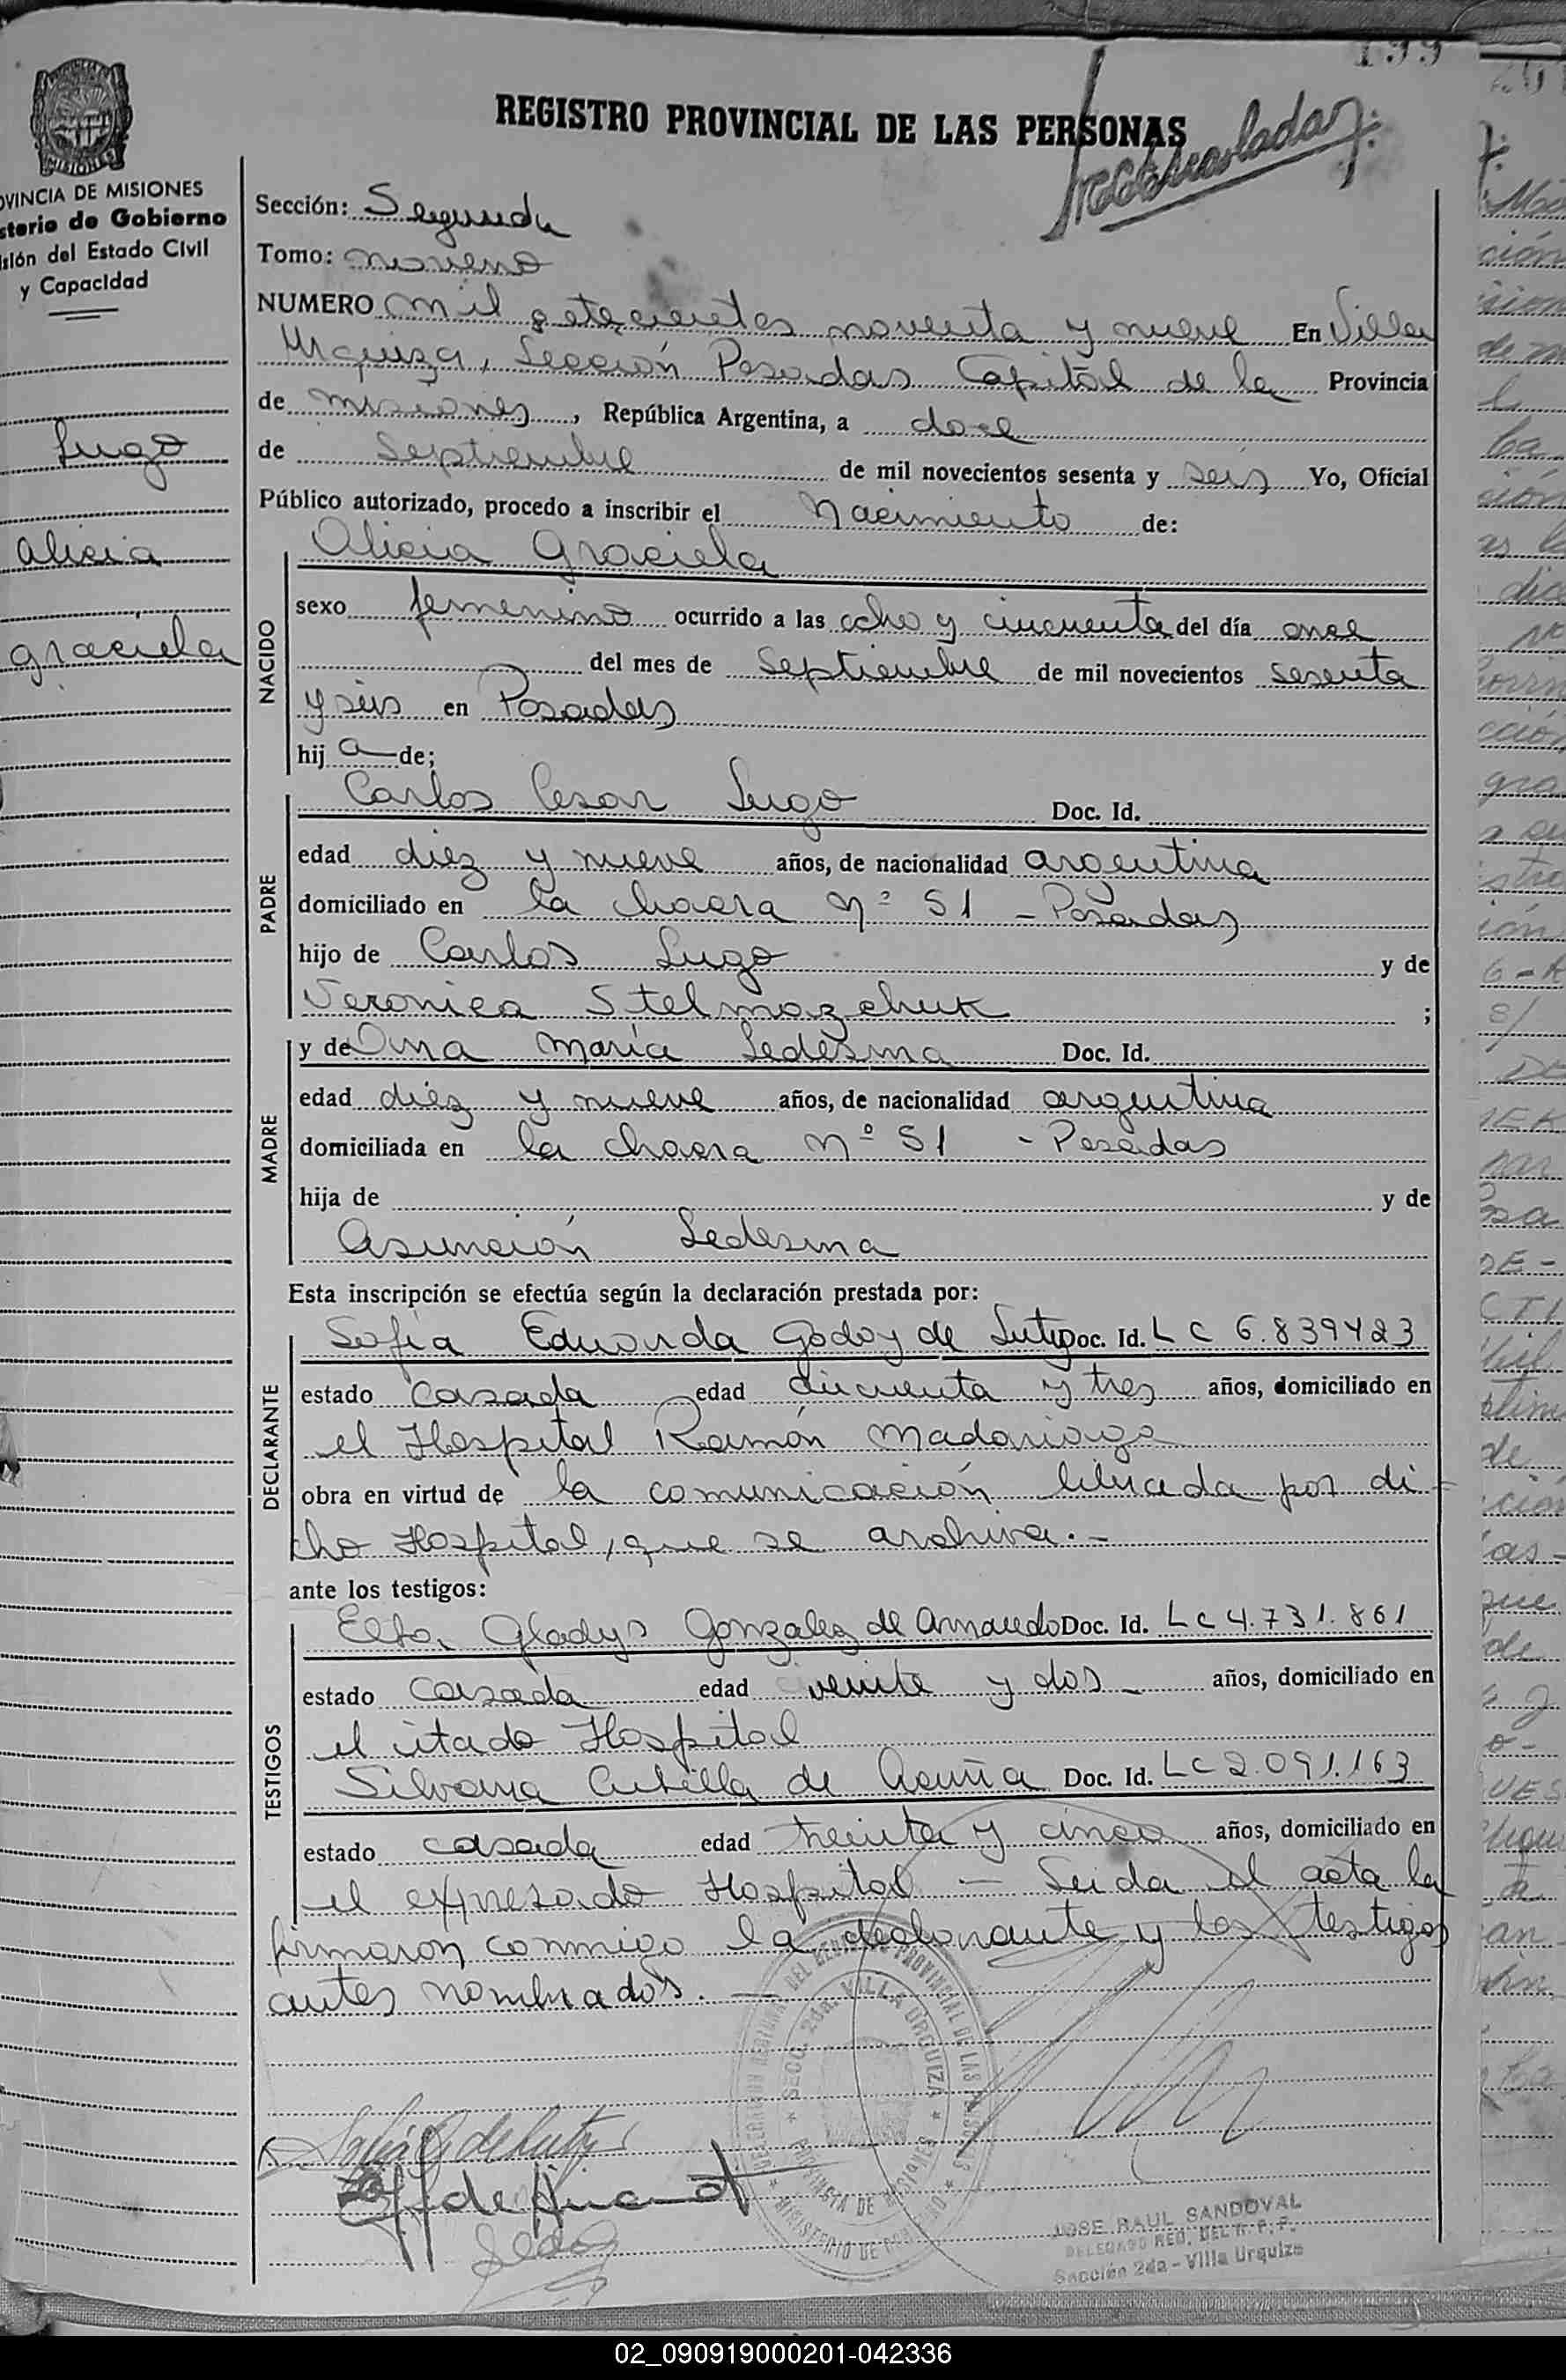 199
REGISTRO PROVINCIAL DE LAS PERSONAS
MISIONES
OVINCIA DE MISIONES
sterio de Gobierno
isión del Estado Civil
y Capacidad
Lugo
Alicia
Graciela
Sección: Segunda
Tomo: noveno
NUMERO mil setecientos noventa y nueve En Villa
Urquiza, Sección Posadas Capital de la Provincia
de misiones, República Argentina, a doce
de Septiembre de mil novecientos sesenta y seis Yo, Oficial
Público autorizado, procedo a inscribir el Nacimiento de:
NACIDO
Alicia Graciela
sexo femenino ocurrido a las ocho y cincuenta del día once
del mes de Septiembre de mil novecientos sesenta
y seis en Posadas
hij a de;
PADRE
Carlos Cesar Lugo Doc. Id.
edad diez y nueve años, de nacionalidad argentina
domiciliado en la chacra Nº 51 - Posadas
hijo de Carlos Lugo y de
Veronica Stelmazchuk ;
MADRE
y de Ana María Ledesma Doc. Id.
edad diez y nueve años, de nacionalidad argentina
domiciliada en la chacra Nº 51 - Posadas
hija de y de
Asunción Ledesma
Esta inscripción se efectúa según la declaración prestada por:
DECLARANTE
Sofía Eduarda Godoy de Doc. Id. LC 6.839423
estado casada edad cincuenta y tres años, domiciliado en
el Hospital Ramón Madariaga
obra en virtud de la comunicación librada por di-
cho Hospital, que se archiva.-
ante los testigos:
TESTIGOS
Elba Gladys Gonzalez de Doc. Id. LC 4.731.861
estado casada edad veinte y dos - años, domiciliado en
el citado Hospital
Silvana Cubilla de Acuña Doc. Id. LC 2.091.163
estado casada edad treinta y cinco años, domiciliado en
el expresado Hospital - Leida el acta la
firmaron conmigo la declarante y los testigos
antes nombrados. -
SECC. 2da. VILLA URQUIZA
PROVINCIA DE MISIONES
JOSE RAUL SANDOVAL
DELEGADO REG. DEL R. P. P.
Sección 2da - Villa Urquiza
02_090919000201-042336